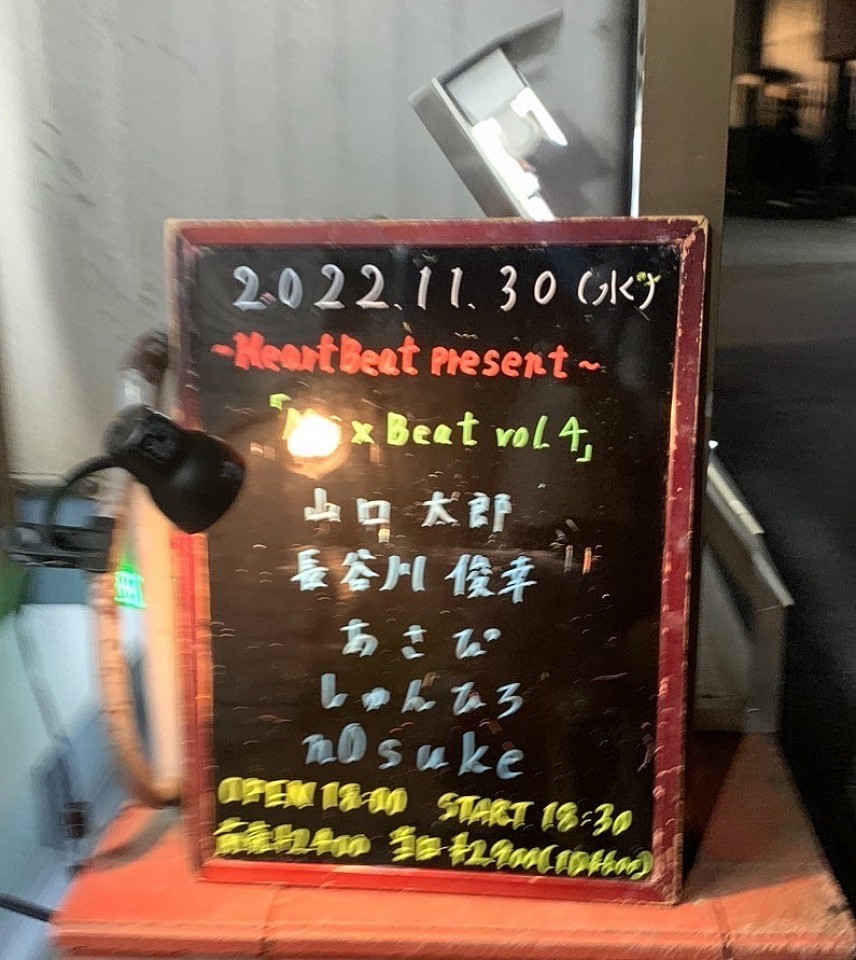 2022.11.30(水)
~HeartBeat present~
x Beat vol.4」
山口 太郎
長谷川 俊幸
あさぴ
しゅんひろ
nOsuke
OPEN 18:00 START 18:30
前売¥2400 当日¥2900(1D¥600)